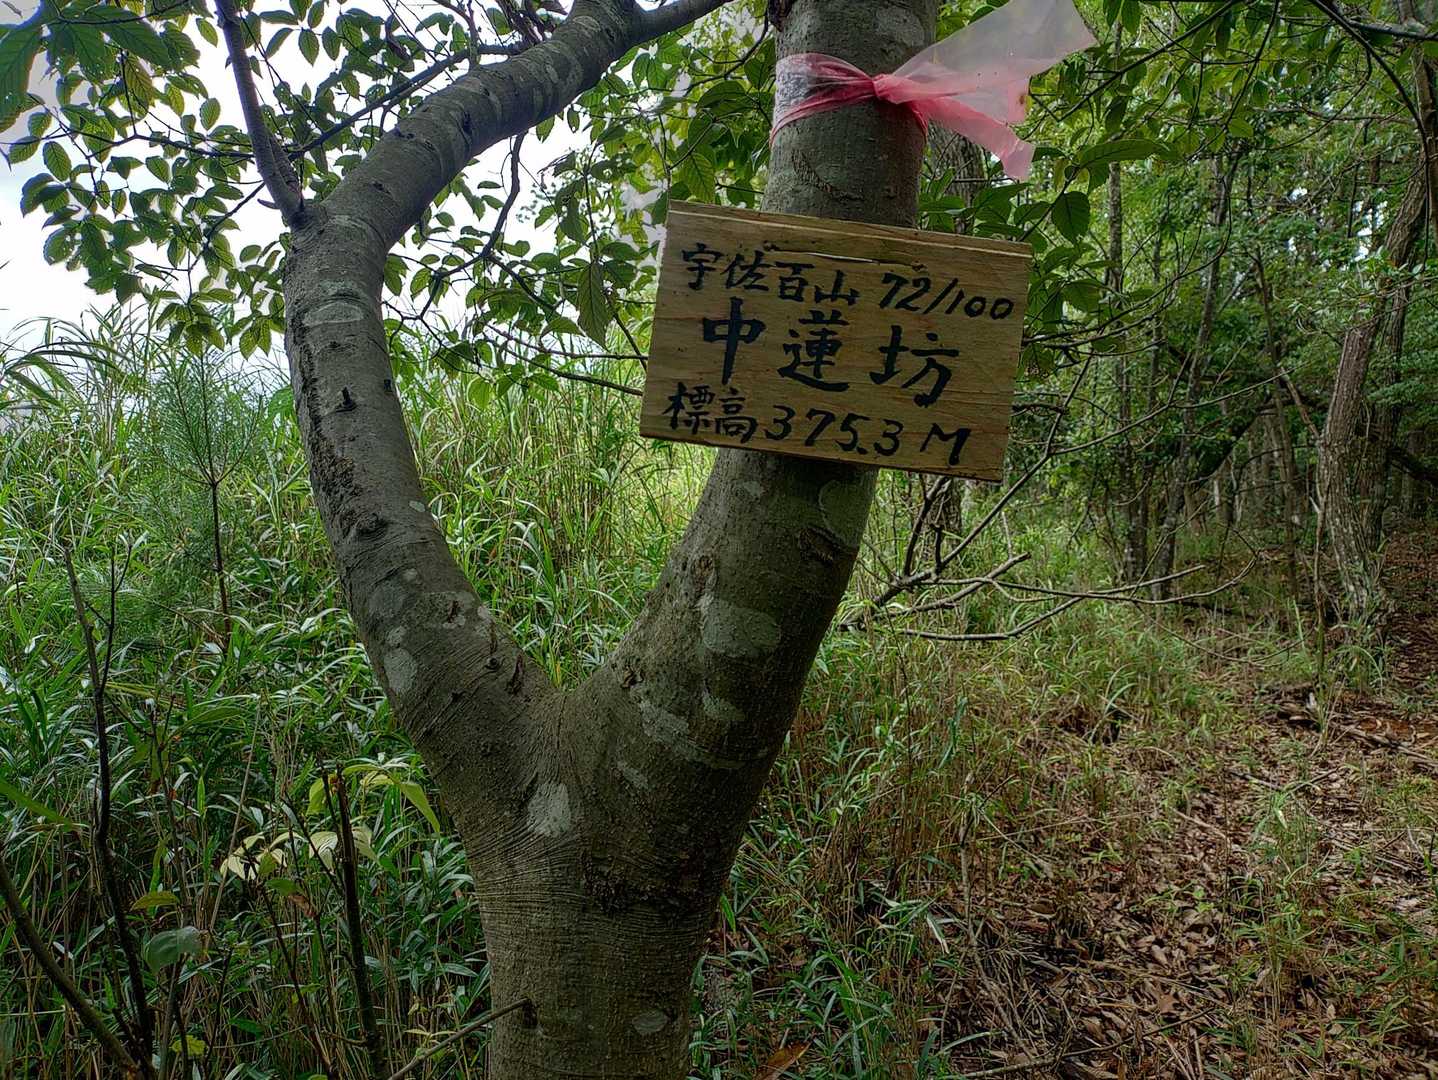 宇佐百山 72/100
中蓮坊
標高375.3M